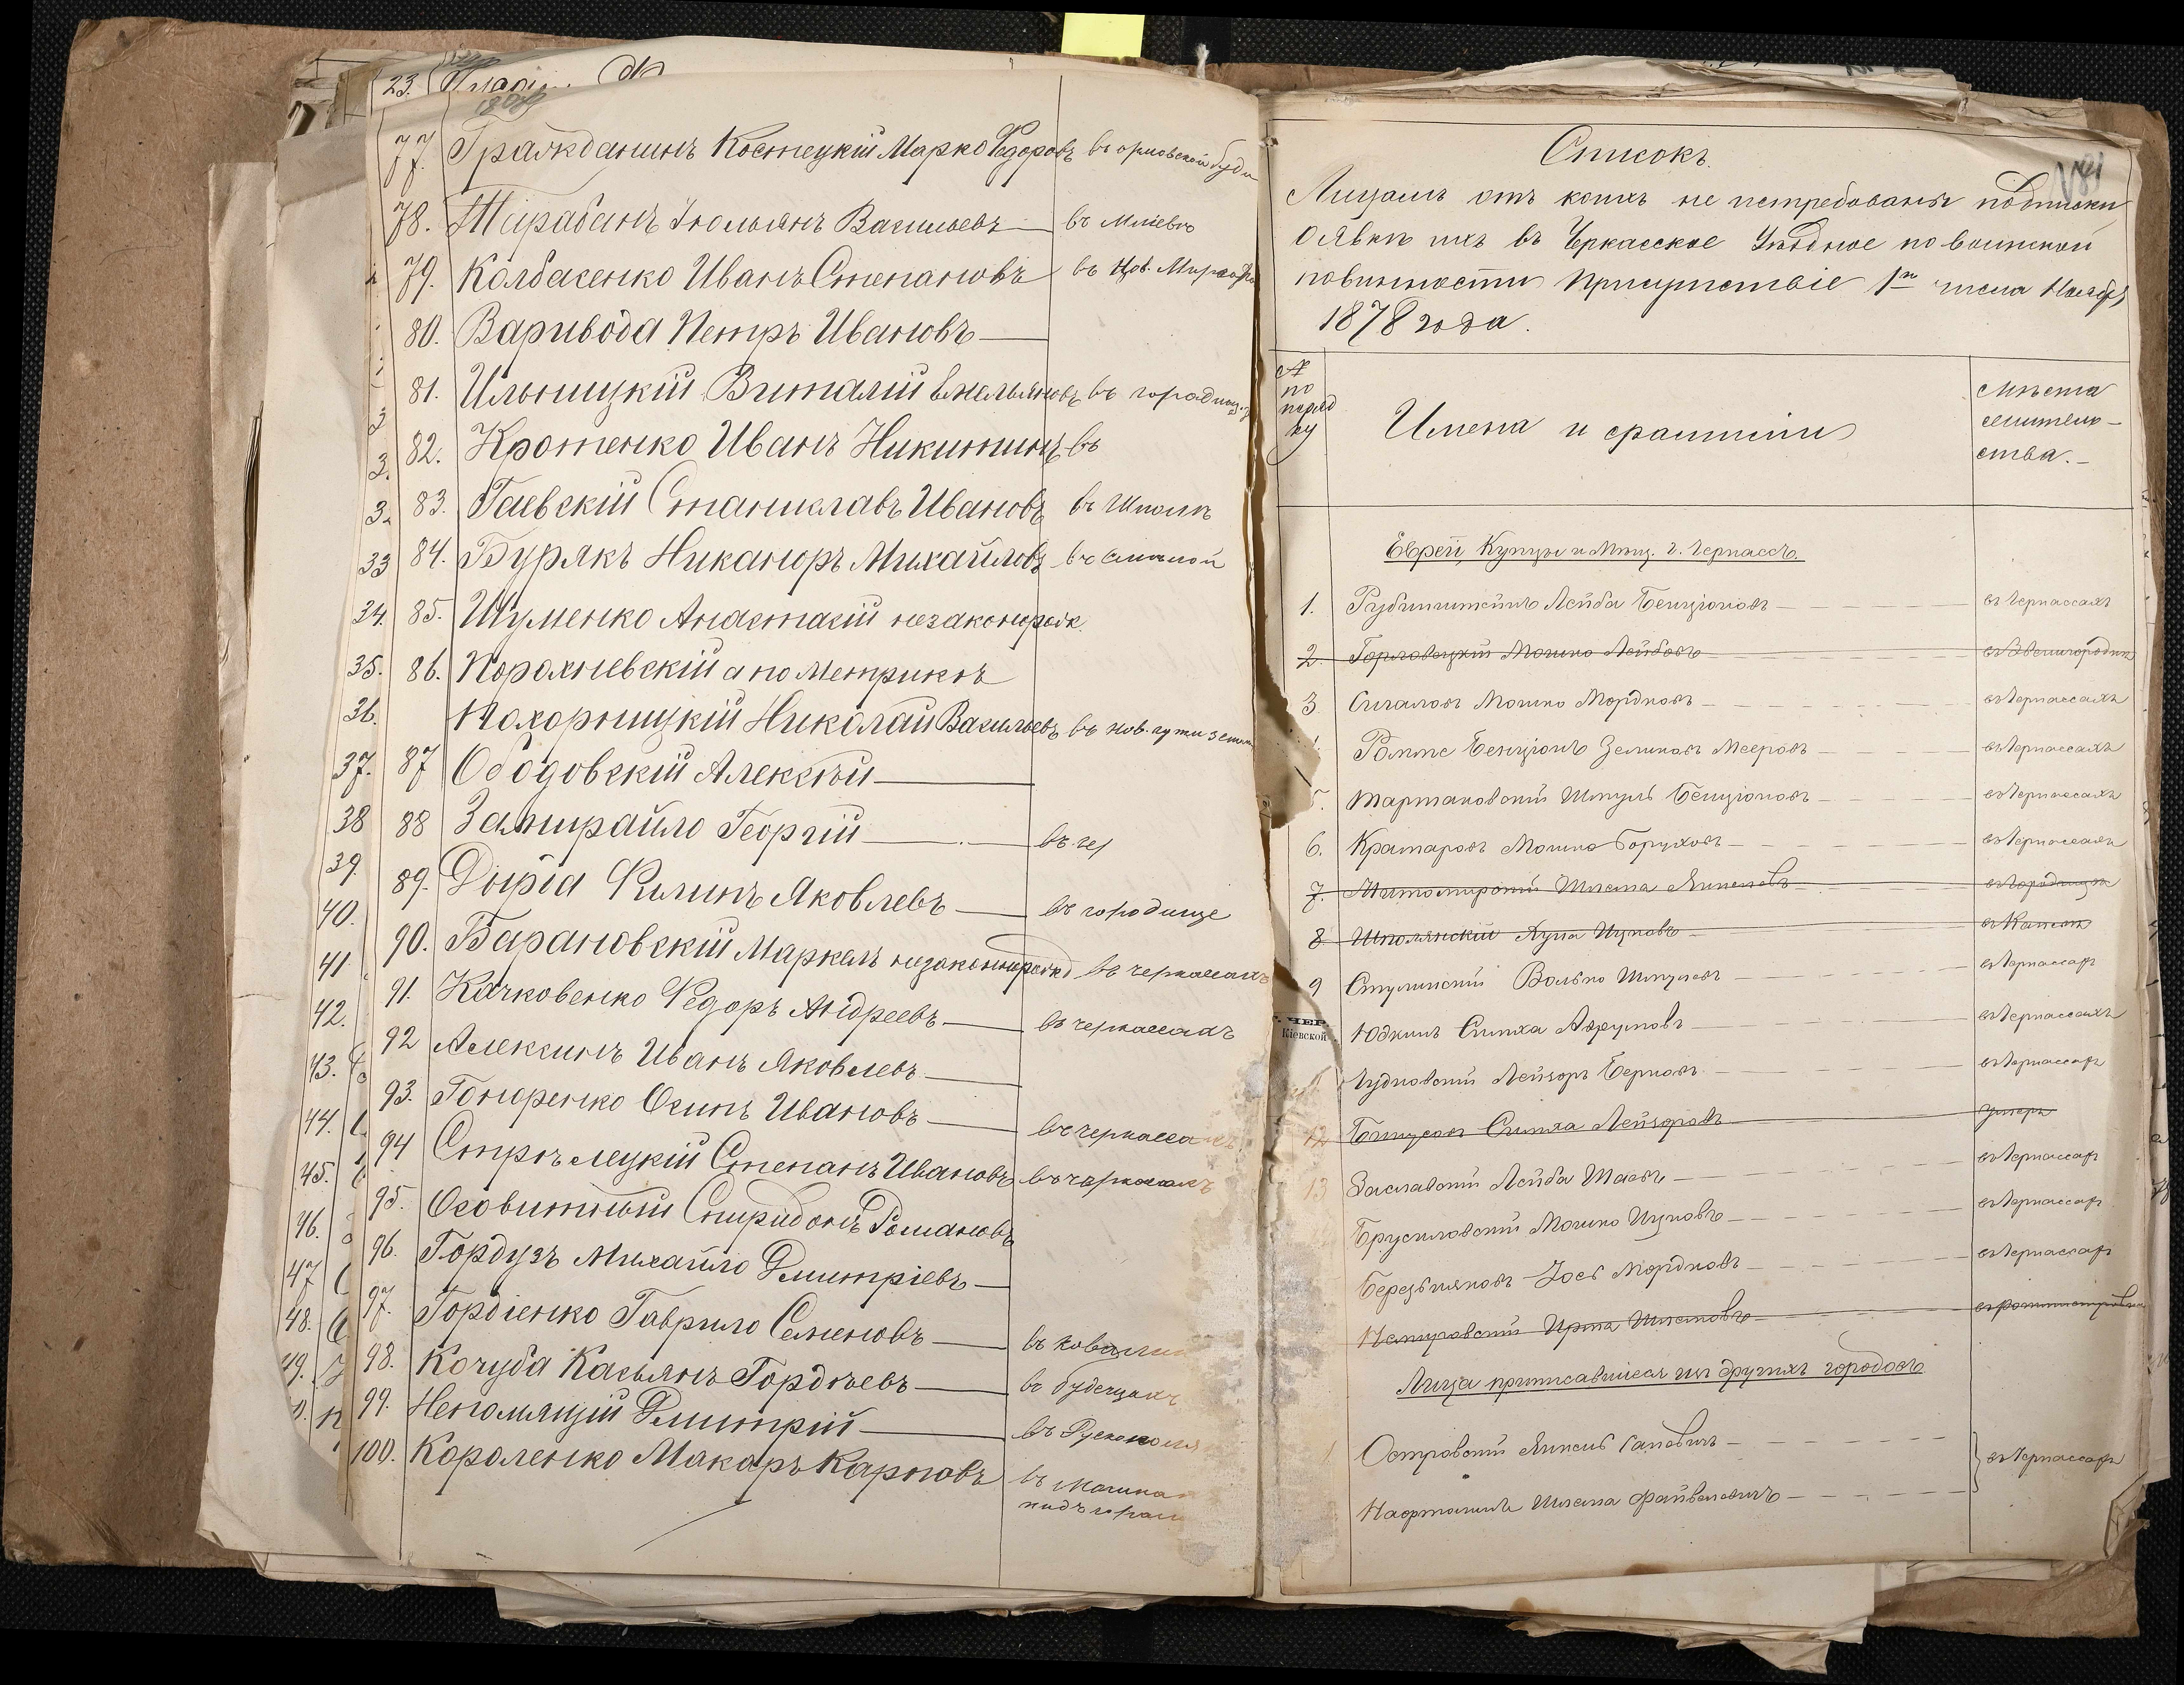 23.
77. Гражданинъ Костецкій Марко Федоровъ въ орловской буди
78. Тарабанъ Іюльянъ Васильевъ въ Мліевѣ
79. Колбасенко Иванъ Степановъ въ
80. Варивода Петръ Ивановъ
81. Ильницкій Виталій Емельяновъ въ городищ.
82. Кротенко Иванъ Никитинъ въ
83. Гаевскій Станиславъ Ивановъ въ Шполѣ
84. Бурякъ Никаноръ Михайловъ въ Смѣлой
85. Шуменко Анастасій незаконорожд.
86. Порохневскій а по Метрикѣ
Похорницкій Николай Васильевъ въ
87 Ободовскій Алексѣй
88 Замирайло Георгій въ чер
89. Дыріа Филипъ Яковлевъ въ городище
90. Барановскій Маркелъ незаконнорожд въ черкассахъ
91. Качковенко Федоръ Андреевъ въ черкассахъ
92 Алексинъ Иванъ Яковлевъ
93. Гоноренко Осипъ Ивановъ въ черкассахъ
94 Стрѣлецкій Степанъ Ивановъ въ черкассахъ
95. Осовитный Спиридонъ Романовъ
96. Гордузъ Михайло Дмитріевъ
97. Гордіенко Гаврило Семеновъ въ
98. Кочуба Касьянъ Гордѣевъ въ будищахъ
99. Непомлящій Дмитрій въ Рускополя
100. Короленко Макаръ Карповъ въ Мошнахъ
33
34.
35.
36.
37.
38
39.
40.
41
42.
43.
44.
45.
46.
47
48.
49.
Списокъ.
Лицамъ отъ коихъ не истребованы подписки
о явкѣ ихъ въ Черкасское Уѣздное по воинской
повинности Присутствіе 1го числа Ноября
1878 года.
№ по порядку
Имена и фамиліи
Мѣста жительства.
Евреи, Купцы и Мѣщ. г. Черкассъ.
1. Рубинштейнъ Лейба Бенціоновъ въ Черкассахъ
2. Горловецкій Мошко Лейбовъ въ Звенигородкѣ
3. Сигаловъ Мошко Мордковъ въ Черкассахъ
Роттъ Бенціонъ Зеликовъ Мееровъ въ Черкассахъ
5. Тартаковскій Шмуль Бенціоновъ въ Черкассахъ
6. Крамаровъ Мошко Боруховъ въ Черкассахъ
7. Житомирскій Шлема Янкелевъ въ Городищѣ
8 Шполянскій Хуна Ицковъ въ Каневѣ
9 Ступинскій Волько Шмулевъ въ Черкассах
. ЧЕР
Кіевской
Юдкинъ Симха Аврумовъ въ Черкассахъ
Чудновскій Лейзоръ Берковъ въ Черкассах
12 Симха Лейзоровъ умеръ
13 Заславскій Лейба Шаевъ въ Черкассах
Брусиловскій Мошко Ицковъ въ Черкассах
Березняковъ Іось Мордковъ въ Черкассах
Шлемовъ
Лица приписавшіеся изъ другихъ городовъ
1. Островскій Янкель въ Черкассах
Нафтанилъ Шлема Файвеловичъ